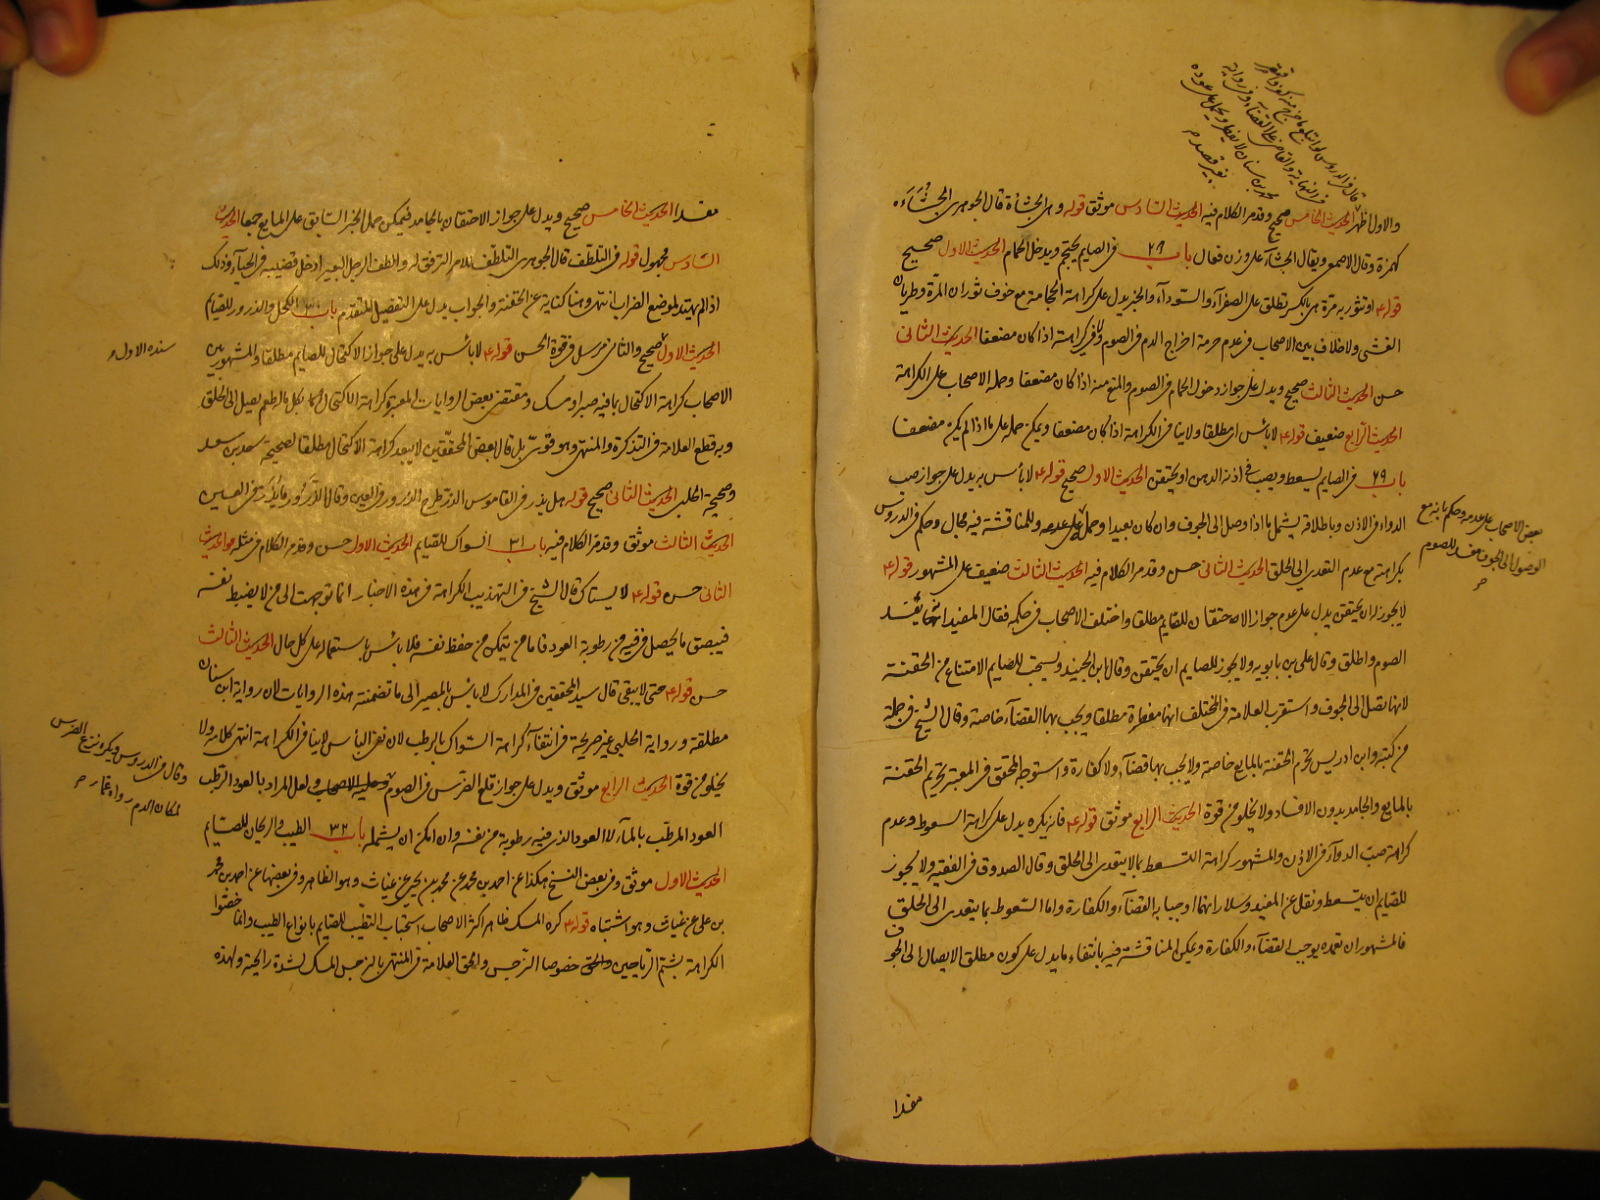 والاول اظهر الحديث الخامس صحيح وقد مر الكلام فيه الحديث السادس موثق قوله وهى الجشأة قال الجوهرى الجشاءه
كهمزة وقال الاصمعى ويقال الجشاء على وزن فعال باب ٢٩ فى الصايم يحتجم ويدخل الحمام الحديث الاول صحيح
قوله ع او تثور به مرة هى بالكسر تطلق على الصفراء والسوداء والخبر يدل على كراهة الحجامة مع خوف ثوران المرة وطريان
الغشى ولا خلاف بين الاصحاب فى عدم حرمة اخراج الدم فى الصوم ولا فى كراهته اذا كان مضعفا الحديث الثانى
حسن الحديث الثالث صحيح ويدل على جواز دخول الحمام فى الصوم والمنع منه اذا كان مضعفا وحمله الاصحاب على الكراهة
الحديث الرابع ضعيف قوله ع لا بأس اه مطلقا ولا ينافى الكراهة اذا كان مضعفا ويمكن حمله على ما اذا لم يكن مضعفا
باب ٢٩ فى الصايم يسعط ويصب فى اذنه الدهن او يحتقن الحديث الاول صحيح قوله ع لا بأس به يدل على جواز صب
الدواء فى الاذن وباطلاقه يشمل ما اذا وصل الى الجوف وان كان بعيدا وحمل على عدمه وللمناقشة فيه مجال وحكم فى الدروس
بكراهته مع عدم التعدى الى الحلق الحديث الثانى حسن وقد مر الكلام فيه الحديث الثالث ضعيف على المشهور قوله ع
لا يجوز له ان يحتقن يدل على عدم جواز الاحتقان للصايم مطلقا واختلف الاصحاب فى حكمه فقال المفيد انها تفسد
الصوم واطلق وقال على بن بابويه ولا يجوز للصايم ان يحتقن وقال ابن الجنيد ويستحب للصايم الامتناع من الحقنة
لانها تصل الى الجوف واستقرب العلامة فى المختلف انها مفطرة مطلقا ويجب بها القضاء خاصة وقال الشيخ فى جملة
من كتبه وابن ادريس تحرم الحقنة بالمايع خاصة ولا يجب بها قضاء ولا كفارة واستوجه المحقق فى المعتبر تحريم الحقنة
بالمايع والجامد بدون الافساد ولا يخلو من قوة الحديث الرابع موثق قوله ع فانه يكره يدل على كراهة السعوط وعدم
كراهة صب الدواء فى الاذن والمشهور كراهة التسعط بما لا يتعدى الى الحلق وقال الصدوق فى الفقيه ولا يجوز
للصايم ان يتسعط ونقل عن المفيد وسلار انهما اوجبا به القضاء والكفارة واما السعوط بما يتعدى الى الحلق
فالمشهور ان تعمده يوجب القضاء والكفارة ويمكن المناقشة فيه بانتفاء ما يدل على كون مطلق الايصال الى الجوف
مفسدا
بعض الاصحاب على عدمه وحكم بانه مع
الوصول الى الجوف مفسد للصوم
مفسدا الحديث الخامس صحيح ويدل على جواز الاحتقان بالجامد فيمكن حمل الخبر السابق على المايع جمعا الحديث
السادس مجهول قوله فى التلطف قال الجوهرى التلطف للامر الترفق له والطف الرجل البعير ادخل قضيبه فى الحياء وذلك
اذا لم يهتد لموضع الضراب انتهى وهنا كناية عن الحقنة والجواب يدل على التفصيل المتقدم باب ٣٠ الكحل والذرور للصايم
الحديث الاول صحيح والثانى مرسل فى قوة الحسن قوله ع لا بأس به يدل على جواز الاكتحال للصايم مطلقا والمشهور بين
الاصحاب كراهة الاكتحال بما فيه صبر او مسك ومقتضى بعض الروايات المعتبرة كراهة الاكتحال بكل ما له طعم يصل الى الحلق
وبه قطع العلامة فى التذكرة والمنتهى وهو قوى بل قال بعض المحققين لا يبعد كراهة الاكتحال مطلقا لصحيحة سعد بن سعد
وصحيحة الحلبى الحديث الثانى صحيح قوله هل يذر فى القاموس الذر طرح الذرور فى العين وقال الذرور ما يذر فى العين
الحديث الثالث موثق وقد مر الكلام فيه باب ٣١ السواك للصايم الحديث الاول حسن وقد مر الكلام فى مثله الحديث
الثانى حسن قوله ع لا يستاك قال الشيخ فى التهذيب الكراهة فى هذه الاخبار انما توجهت الى من لا يضبط نفسه
فيبصق ما يحصل فى فيه من رطوبة العود فاما من يتمكن من حفظ نفسه فلا بأس باستعماله على كل حال الحديث الثالث
حسن قوله ع حتى لا يبقى قال سيد المحققين فى المدارك لا بأس بالمصير الى ما تضمنته هذه الروايات لان رواية ابن سنان
مطلقة ورواية الحلبى غير صريحة فى انتفاء كراهة السواك بالرطب لان نفى البأس لا ينافى الكراهة انتهى كلامه ولا
يخلو من قوة الحديث الرابع موثق ويدل على جواز قلع الضرس فى الصوم وعليه الاصحاب ولعل المراد بالعود الرطب
العود المرطب بالماء لا العود الذى فيه رطوبة من نفسه وان امكن ان يشمله باب ٣٢ الطيب والريحان للصايم
الحديث الاول موثق وفى بعض النسخ هكذا عن احمد بن محمد عن محمد بن يحيى عن غياث وهو الظاهر وفى بعضها عن احمد بن محمد
بن على عن غياث وهو اشتباه قوله ع كره المسك ظاهر اكثر الاصحاب استحباب التطيب للصايم بانواع الطيب وانما خصوا
الكراهة بشم الرياحين خصوصا النرجس والحق العلامة فى المنتهى بالنرجس المسك لشدة رايحته ولهذه
سنده الاول
وقال فى الدروس ويكره نزع الضرس
لمكان الدم رواه عمار